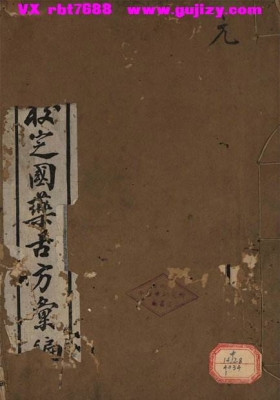 VX rbt7688 www.gujizy.com
元
校定國藥古方彙編